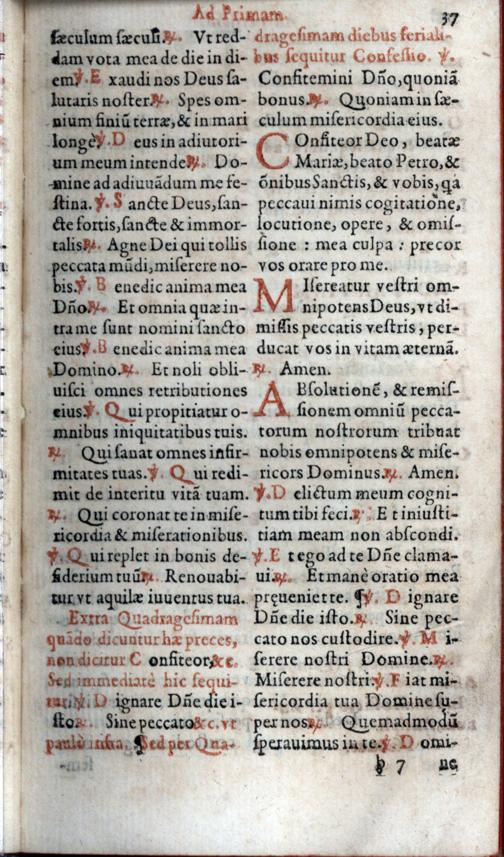 Ad Primam
37
sæculum sæculi.℟. Vt red-
dam vota mea de die in di-
em.℣.E xaudi nos Deus sa-
lutaris noster.℟. Spes om-
nium finiũ terræ, & in mari
longè.℣.D eus in adiutori-
um meum intende.℟. Do-
mine ad adiuuãdum me fe-
stina.℣.S ancte Deus, san-
cte fortis, sancte & immor-
talis.℟. Agne Dei qui tollis
peccata mũdi, miserere no-
bis.℣.B enedic anima mea
Dño.℟. Et omnia quæ in-
tra me sunt nomini sancto
eius.℣.B enedic anima mea
Domino.℟. Et noli obli-
uisci omnes retributiones
eius.℣. Q ui propitiatur o-
mnibus iniquitatibus tuis.
℟. Qui sanat omnes infir-
mitates tuas.℣. Q ui redi-
mit de interitu vitã tuam.
℟. Qui coronat te in mise-
ricordia & miserationibus.
℣.Q ui replet in bonis de-
siderium tuũ.℟. Renouabi-
tur vt aquilæ iuuentus tua.
Extra Quadragesimam
quãdo dicuntur hæ preces,
non dicitur C onfiteor,&c.
Sed immediatè hic sequi-
tur.℣.D ignare Dñe die i-
sto.℟. Sine peccato &c. vt
paulò infra. ¶ Sed per Qua-
dragesimam diebus feriali-
bus sequitur Confessio. ℣.
Confitemini Dño, quoniã
bonus.℟. Quoniam in sæ-
culum misericordia eius.
COnfiteor Deo, beatæ
Mariæ, beato Petro, &
õnibus Sanctis, & vobis, ꝗa
peccaui nimis cogitatione,
locutione, opere, & omis-
sione : mea culpa : precor
vos orare pro me.
MIsereatur vestri om-
nipotens Deus, vt di-
missis peccatis vestris, per-
ducat vos in vitam æternã.
℟. Amen.
ABsolutionẽ, & remis-
sionem omniũ pecca-
torum nostrorum tribuat
nobis omnipotens & mise-
ricors Dominus.℟. Amen.
℣.D elictum meum cogni-
tum tibi feci.℟. E t iniusti-
tiam meam non abscondi.
℣.E t ego ad te Dñe clama-
ui.℟. Et manè oratio mea
pręueniet te. ¶ ℣. D ignare
Dñe die isto.℟. Sine pec-
cato nos custodire.℣. M i-
serere nostri Domine.℟.
Miserere nostri.℣.F iat mi-
sericordia tua Domine su-
per nos.℟. Quemadmodũ
sperauimus in te.℣.D omi-
h 7 ne